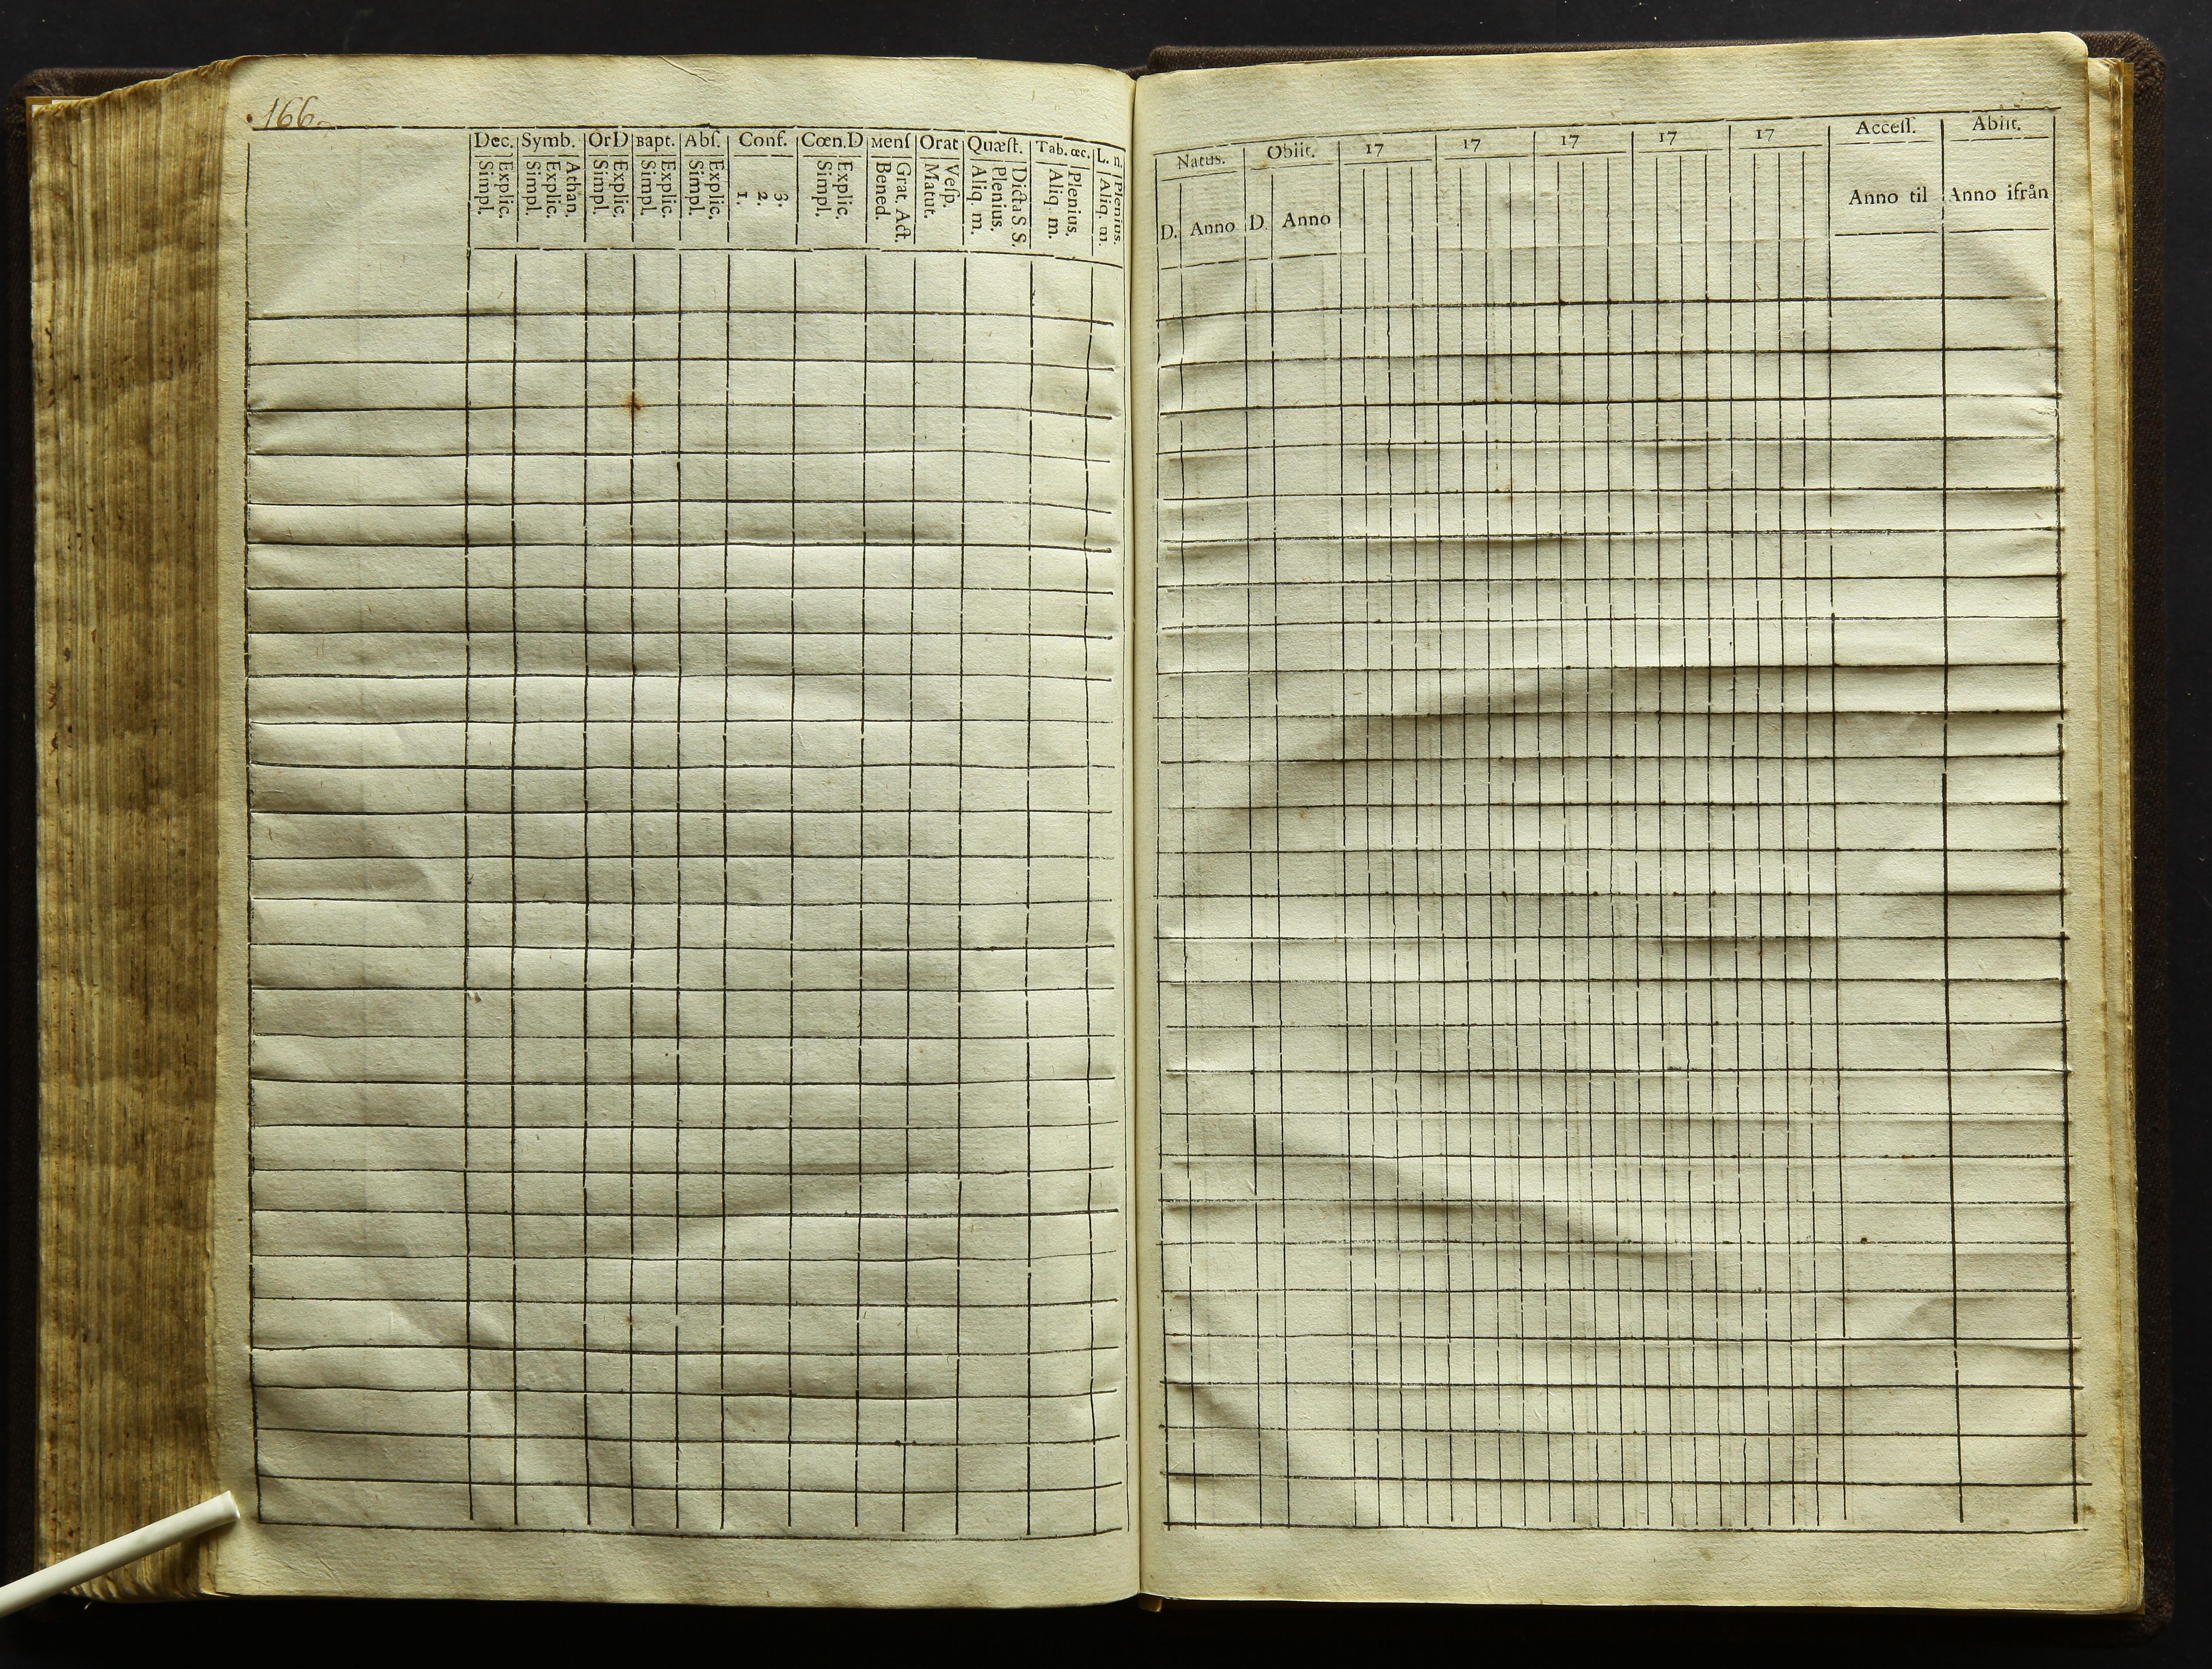 166.
Dec. Symb. OrD Bapt. Abſ. Conf. Cœn.D Menſ Orat Quæſt. Tab. œc. L. n.
Simpl. Explic. Simpl. Explic. Athan. Simpl. Explic. Simpl. Explic. Simpl. Explic. 1. 2. 3. Simpl. Explic. Bened. Grat. Act. Matut. Veſp. Aliq. m. Plenius. Dicta S. S. Aliq. m. Plenius. Aliq. m. Plenius.
Natus. Obiit. 17 17 17 17 17 Acceſſ. Abiit.
D. Anno D. Anno Anno til Anno ifrån